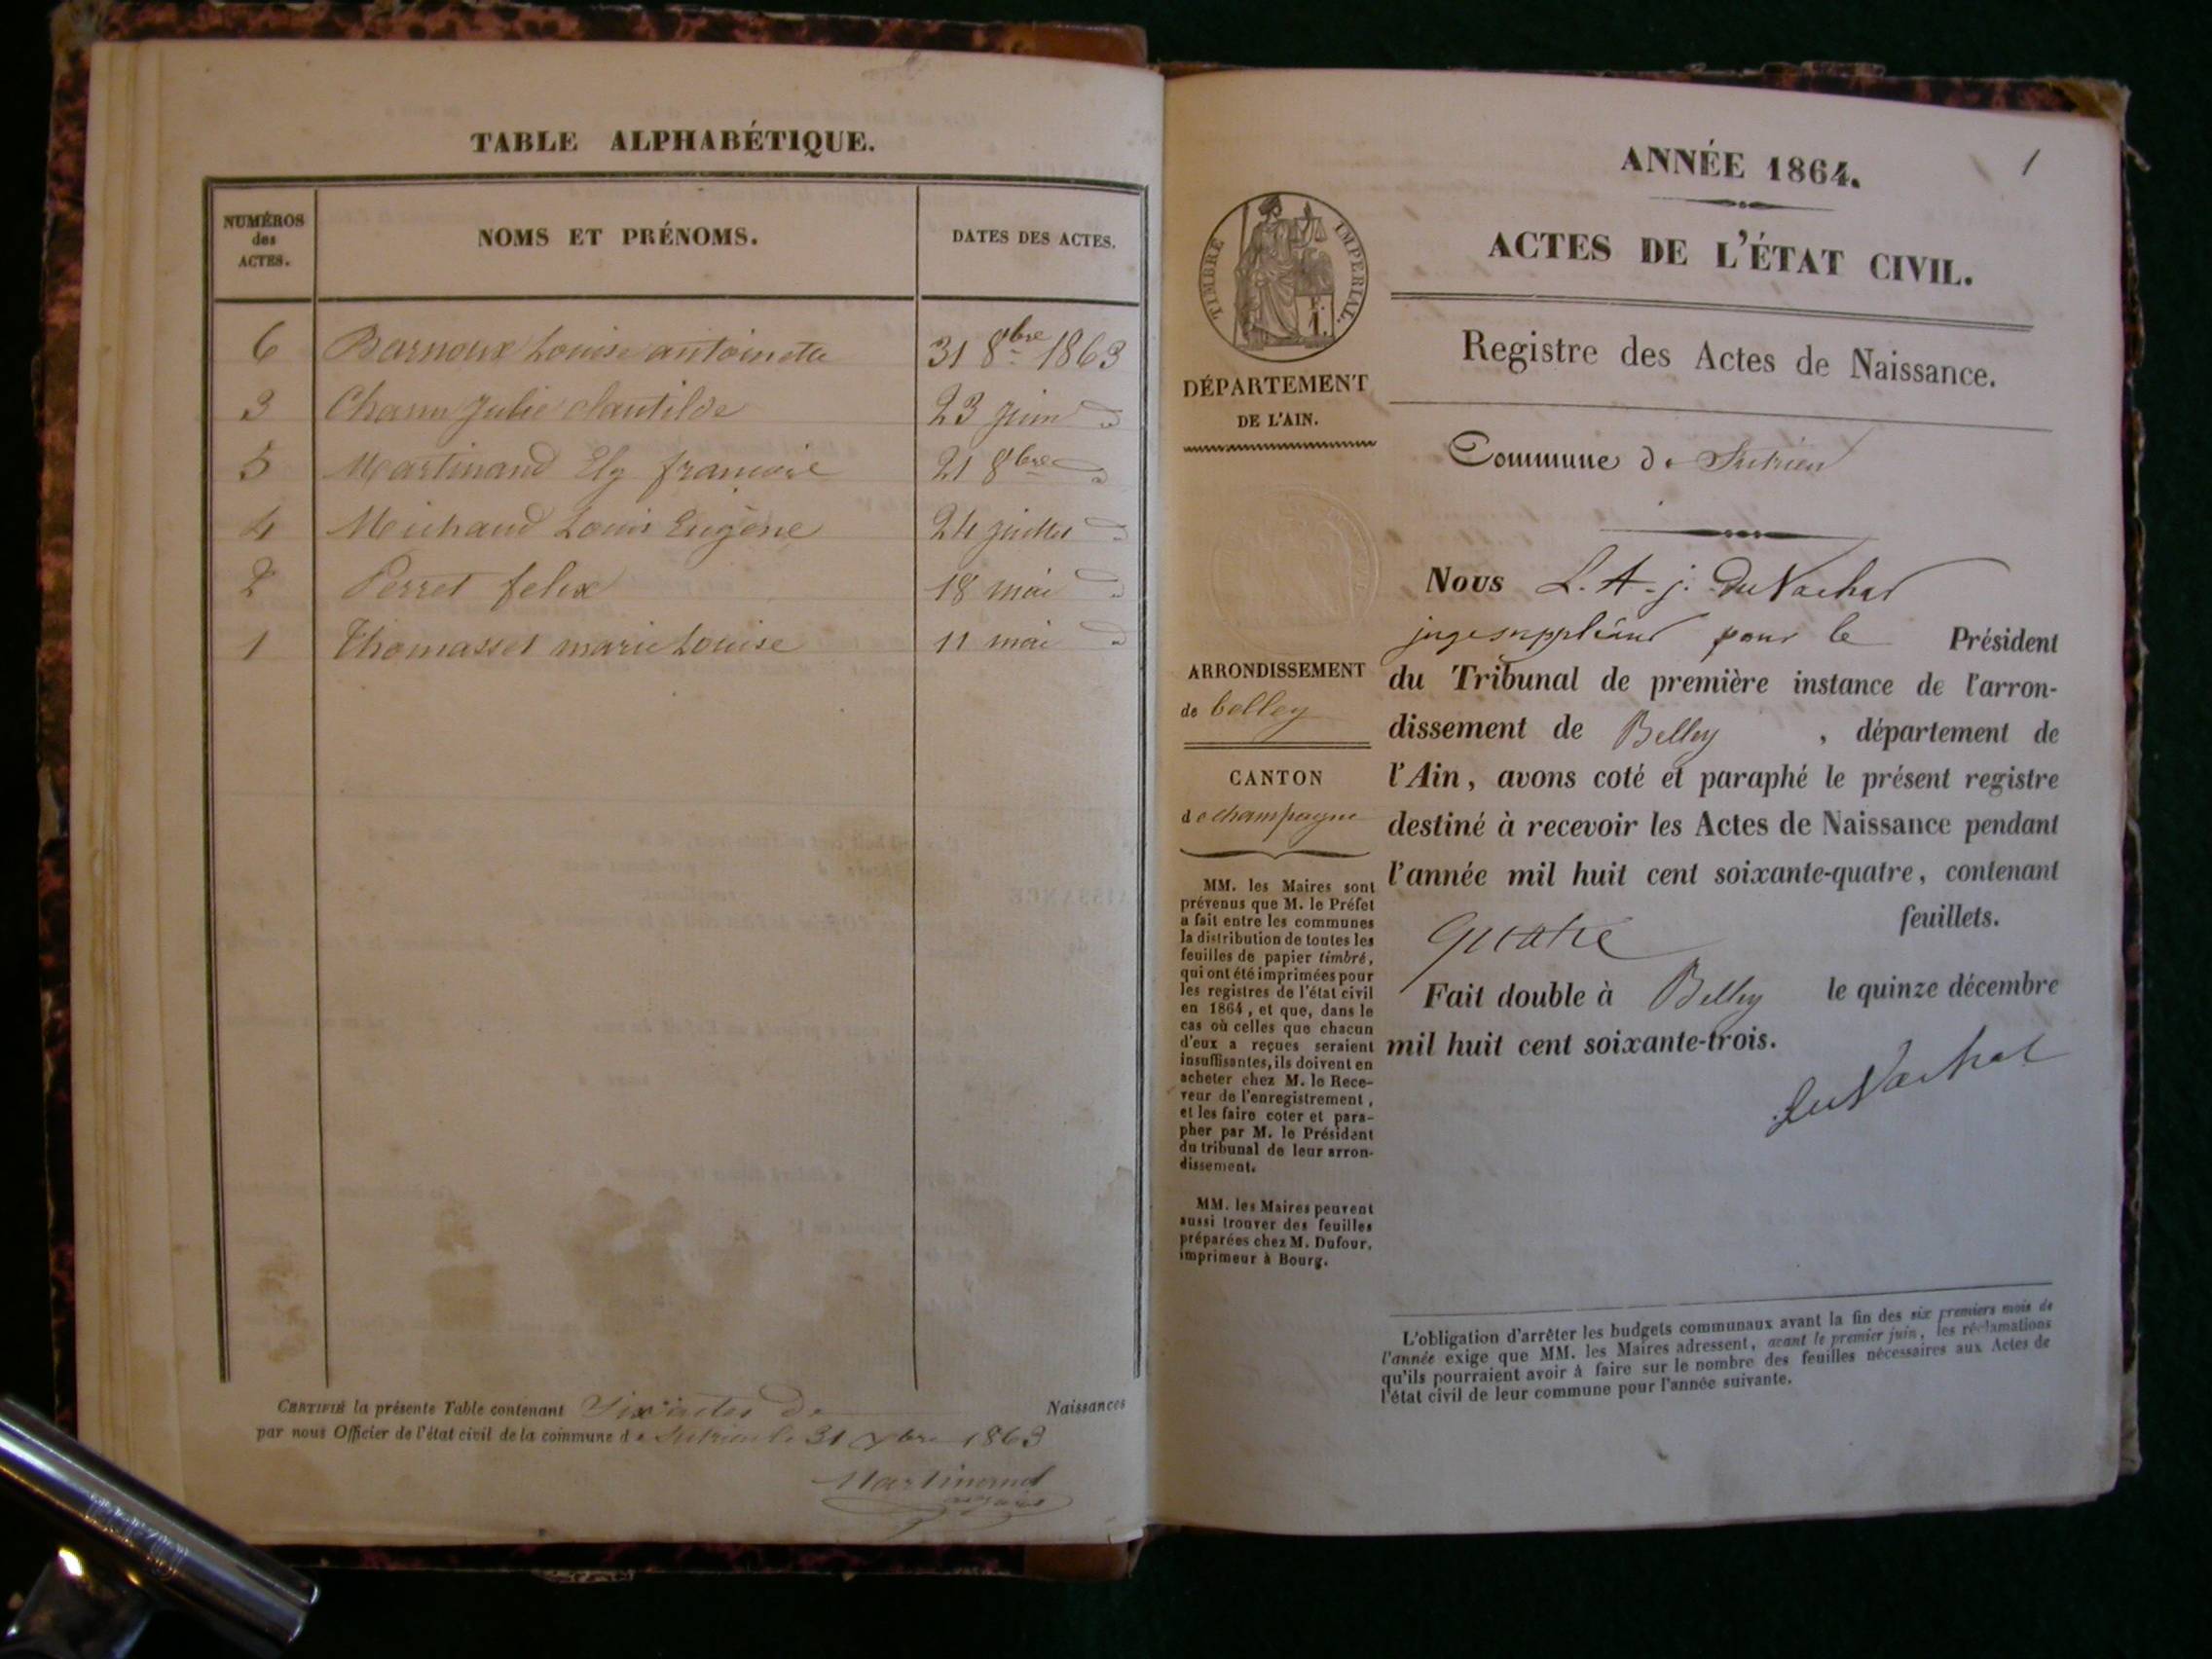 TABLE ALPHABÉTIQUE.
NUMÉROS
des
ACTES.
NOMS ET PRÉNOMS.
DATES DES ACTES.
6 Barnoux Louise antoinette 31 8bre 1863
3 Julie clautilde 23 juin d
5 Martinand francoise 21 8bre d
4 Michaud Louis Eugène 24 juillet d
2 Perret felix 18 mai d
1 Thomasset marie Louise 11 mai d
CERTIFIÉ la présente Table contenant Six actes de Naissances
par nous Officier de l'état civil de la commune de Sutrieu le 31 Xbre 1863
Martinand
maire
1
ANNÉE 1864.
ACTES DE L'ÉTAT CIVIL.
Registre des Actes de Naissance.
Commune de Sutrieu
TIMBRE IMPERIAL.
DÉPARTEMENT
DE L'AIN.
ARRONDISSEMENT
de belley
CANTON
de champagne
MM. les Maires sont
prévenus que M. le Préfet
a fait entre les communes
la distribution de toutes les
feuilles de papier timbré,
qui ont été imprimées pour
les registres de l'état civil
en 1864, et que, dans le
cas où celles que chacun
d'eux a reçues seraient
insuffisantes, ils doivent en
acheter chez M. le Rece-
veur de l'enregistrement,
et les faire coter et para-
pher par M. le Président
du tribunal de leur arron-
dissement.
MM. les Maires peuvent
aussi trouver des feuilles
préparées chez M. Dufour,
imprimeur à Bourg.
Nous L. A. j. Du Vachat
juge suppléant pour le Président
du Tribunal de première instance de l'arron-
dissement de Belley, département de
l'Ain, avons coté et paraphé le présent registre
destiné à recevoir les Actes de Naissance pendant
l'année mil huit cent soixante-quatre, contenant
quatre feuillets.
Fait double à Belley le quinze décembre
mil huit cent soixante-trois.
Du Vachat
L'obligation d'arrêter les budgets communaux avant la fin des six premiers mois de
l'année exige que MM. les Maires adressent, avant le premier juin, les réclamations
qu'ils pourraient avoir à faire sur le nombre des feuilles nécessaires aux Actes de
l'état civil de leur commune pour l'année suivante.